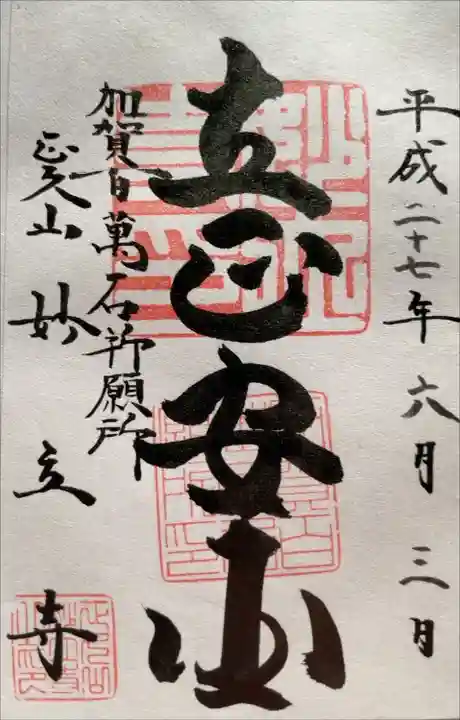 平成二十七年六月三日
立正安国
加賀百萬石祈願所
正久山妙立寺